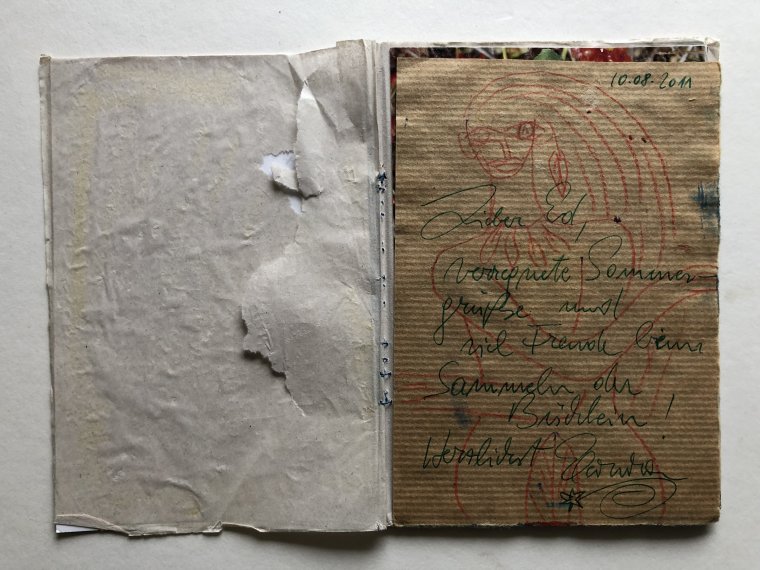 10.08.2011
Lieber Ed,
verregnete Sommer-
grüße und
viel Freude beim
Sammeln der
Büchlein!
Herzlichst